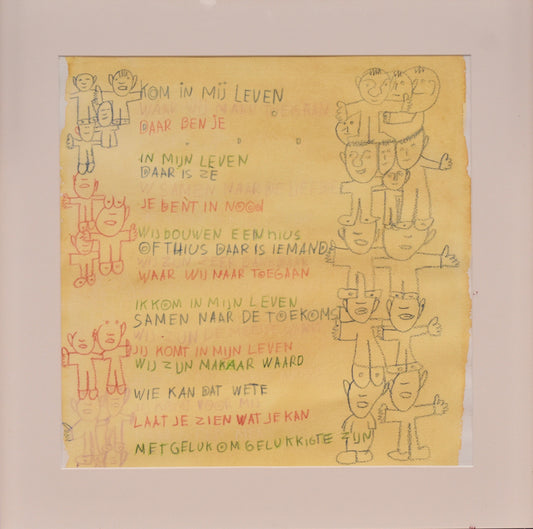 KOM IN MIJ LEVEN
WAAR WIJ NAAR TOEGAAN
DAAR BEN JE
IN MIJN LEVEN
DAAR IS ZE
SAMEN NAAR DE
JE BENT IN NOOD
WIJ DOUWEN EEN HIUS
OF THIUS DAAR IS IEMAND
WAAR WIJ NAAR TOEGAAN
IK KOM IN MIJN LEVEN
SAMEN NAAR DE TOEKOMST
JIJ KOMT IN MIJN LEVEN
WIJ ZIJN MAKAAR WAARD
WIE KAN DAT WETE
LAAT JE ZIEN WAT JE KAN
MET GELUK OM GELUKKIGTE ZIJN